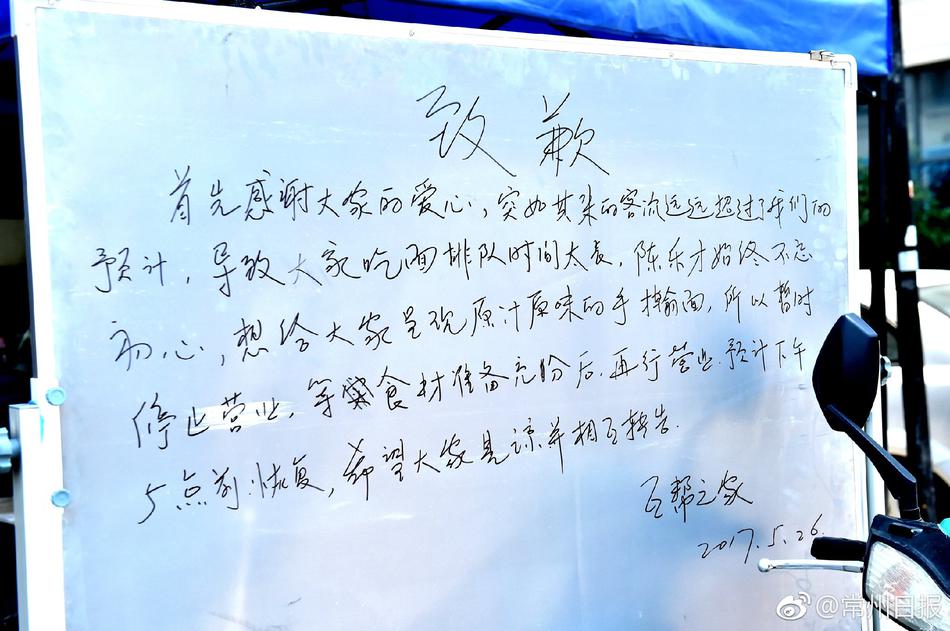 致歉
首先感谢大家的爱心，突如其来的客流远远超过了我们的
预计，导致大家吃面排队时间太长，陈乐才始终不忘
初心，想给大家呈现原汁原味的手擀面，所以暂时
停止营业，等食材准备充份后，再行营业.预计下午
5点前恢复，希望大家见谅并相互转告.
互帮之家
2017.5.26.
@常州日报